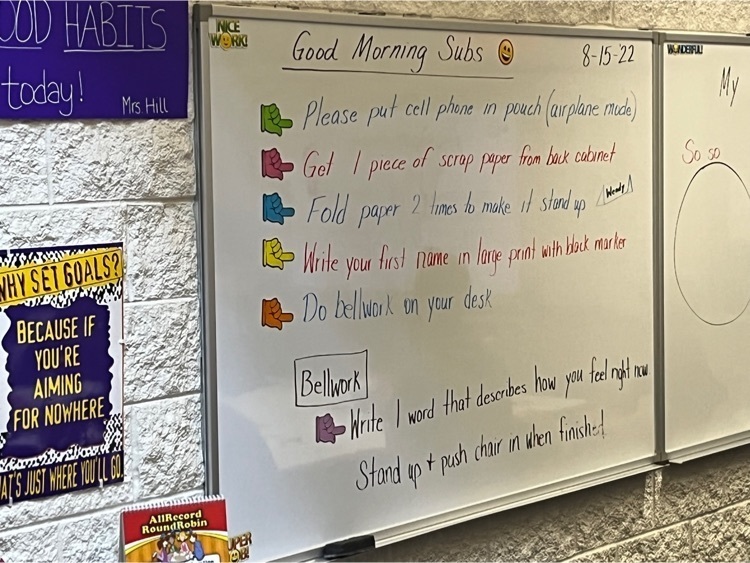 OOD HABITS
today!
Mrs. Hill
WHY SET GOALS?
BECAUSE IF
YOU'RE
AIMING
FOR NOWHERE
THAT'S JUST WHERE YOU'LL GO.
AllRecord
RoundRobin
UPER
NICE
WORK!
Good Morning Subs
8-15-22
Please put cell phone in pouch (airplane mode)
Get 1 piece of scrap paper from back cabinet
Fold paper 2 times to make it stand up
Wendy
Write your first name in large print with black marker
Do bellwork on your desk
Bellwork
Write 1 word that describes how you feel right now
Stand up + push chair in when finished
WONDERFUL!
My
So so